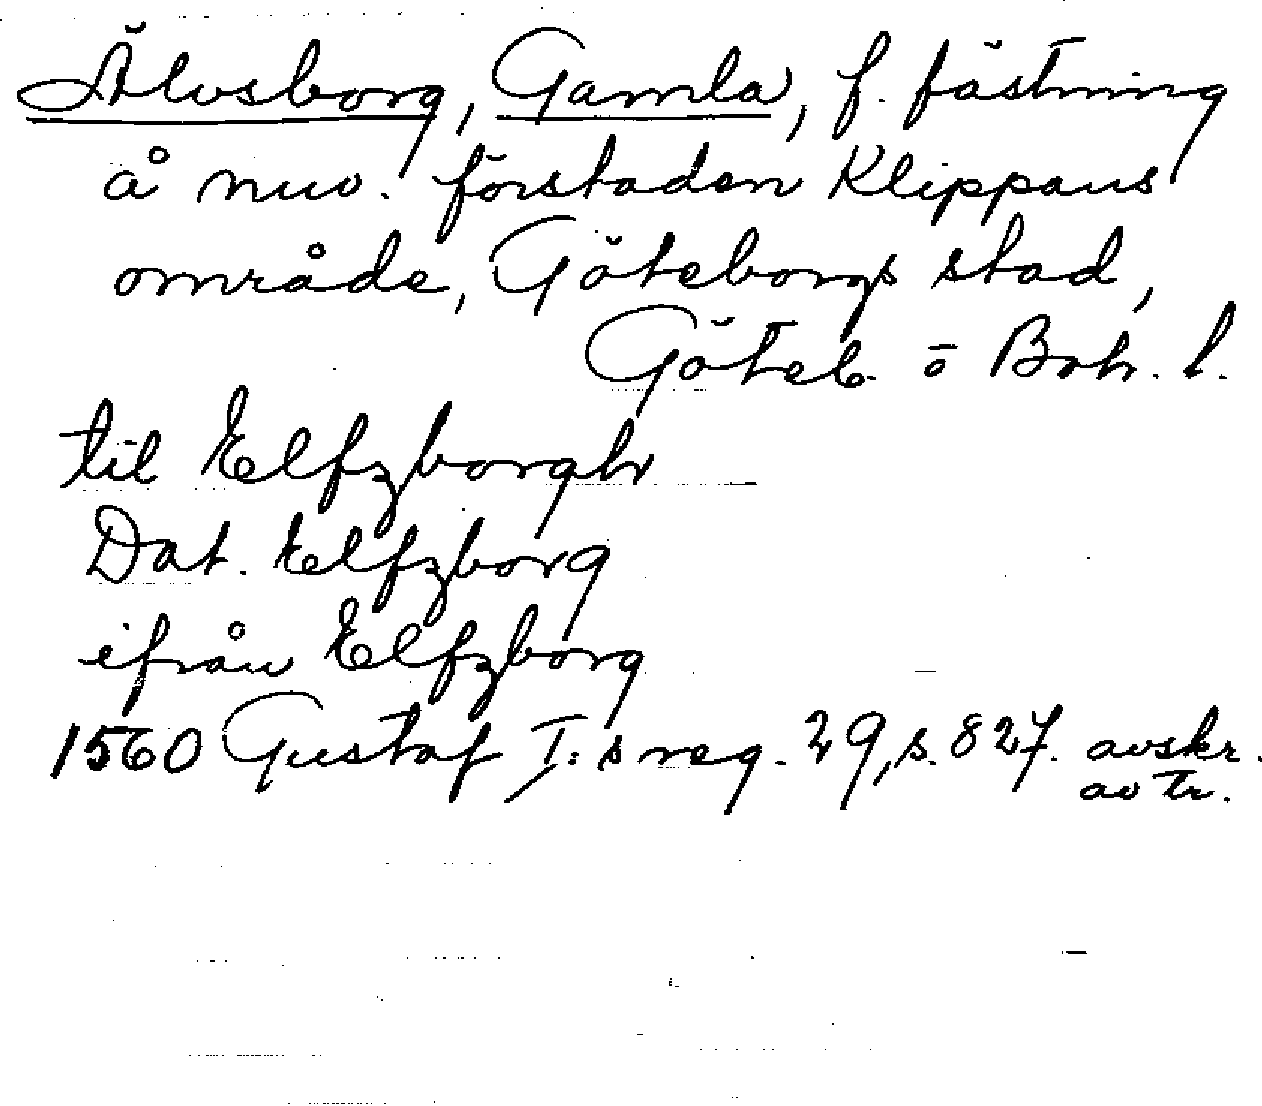 Älvsborg, Gamla, f. fästning
å nuv. förstaden Klippans
område, Göteborgs stad,
Göteb. o Boh. l.
til Elfzborgh
Dat. Elfzborg
ifrån Elfzborg
1560 Gustaf I:s reg. 29, s. 827. avskr.
av tr.